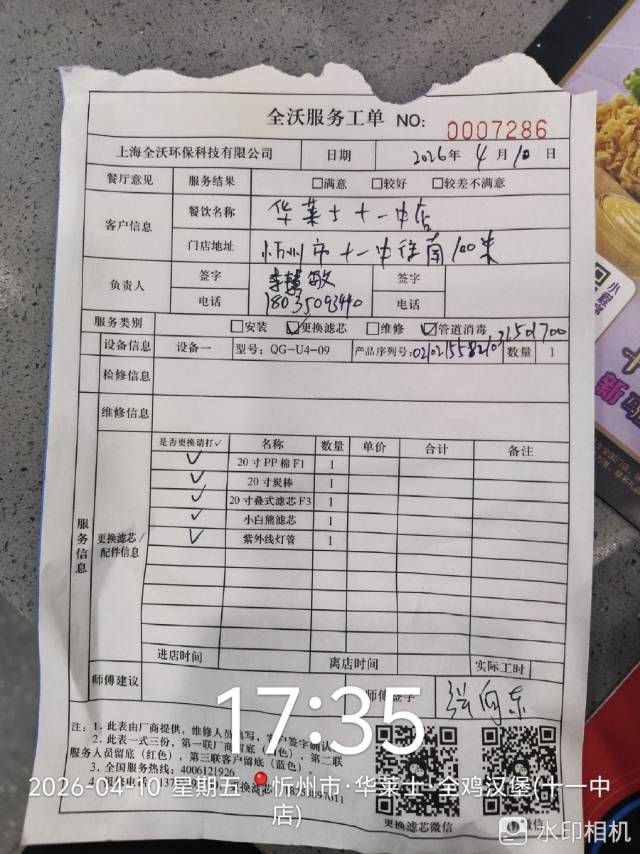 全沃服务工单 NO: 0007286
上海全沃环保科技有限公司 日期 2026年 4月10日
餐厅意见 服务结果 □满意 □较好 □较差不满意
客户信息 餐饮名称 华莱士十一中店
门店地址 忻州市十一中往南100米
负责人 签字 签字
电话 18035093440 电话
服务类别 □安装 ☑更换滤芯 □维修 ☑管道消毒
设备信息 设备一 型号: QG-U4-09 产品序列号: 数量 1
检修信息
维修信息
服务信息
更换滤芯/配件信息
是否更换请打✓ 名称 数量 单价 合计 备注
✓ 20寸PP棉F1 1
✓ 20寸炭棒 1
✓ 20寸叠式滤芯F3 1
✓ 小白熊滤芯 1
✓ 紫外线灯管 1
进店时间 离店时间 实际工时
师傅建议 师傅签字 张向东
17:35
注: 1, 此表由厂商提供, 维修人员填写, 客户签字确认
2, 此表一式三份, 第一联厂商留底 第二联
服务人员留底(红色), 第三联客户留底(蓝色)
3, 全国服务热线: 4006121926
2026-04-10 星期五 忻州市·华莱士·全鸡汉堡(十一中
店)
更换滤芯微信
水印相机
新